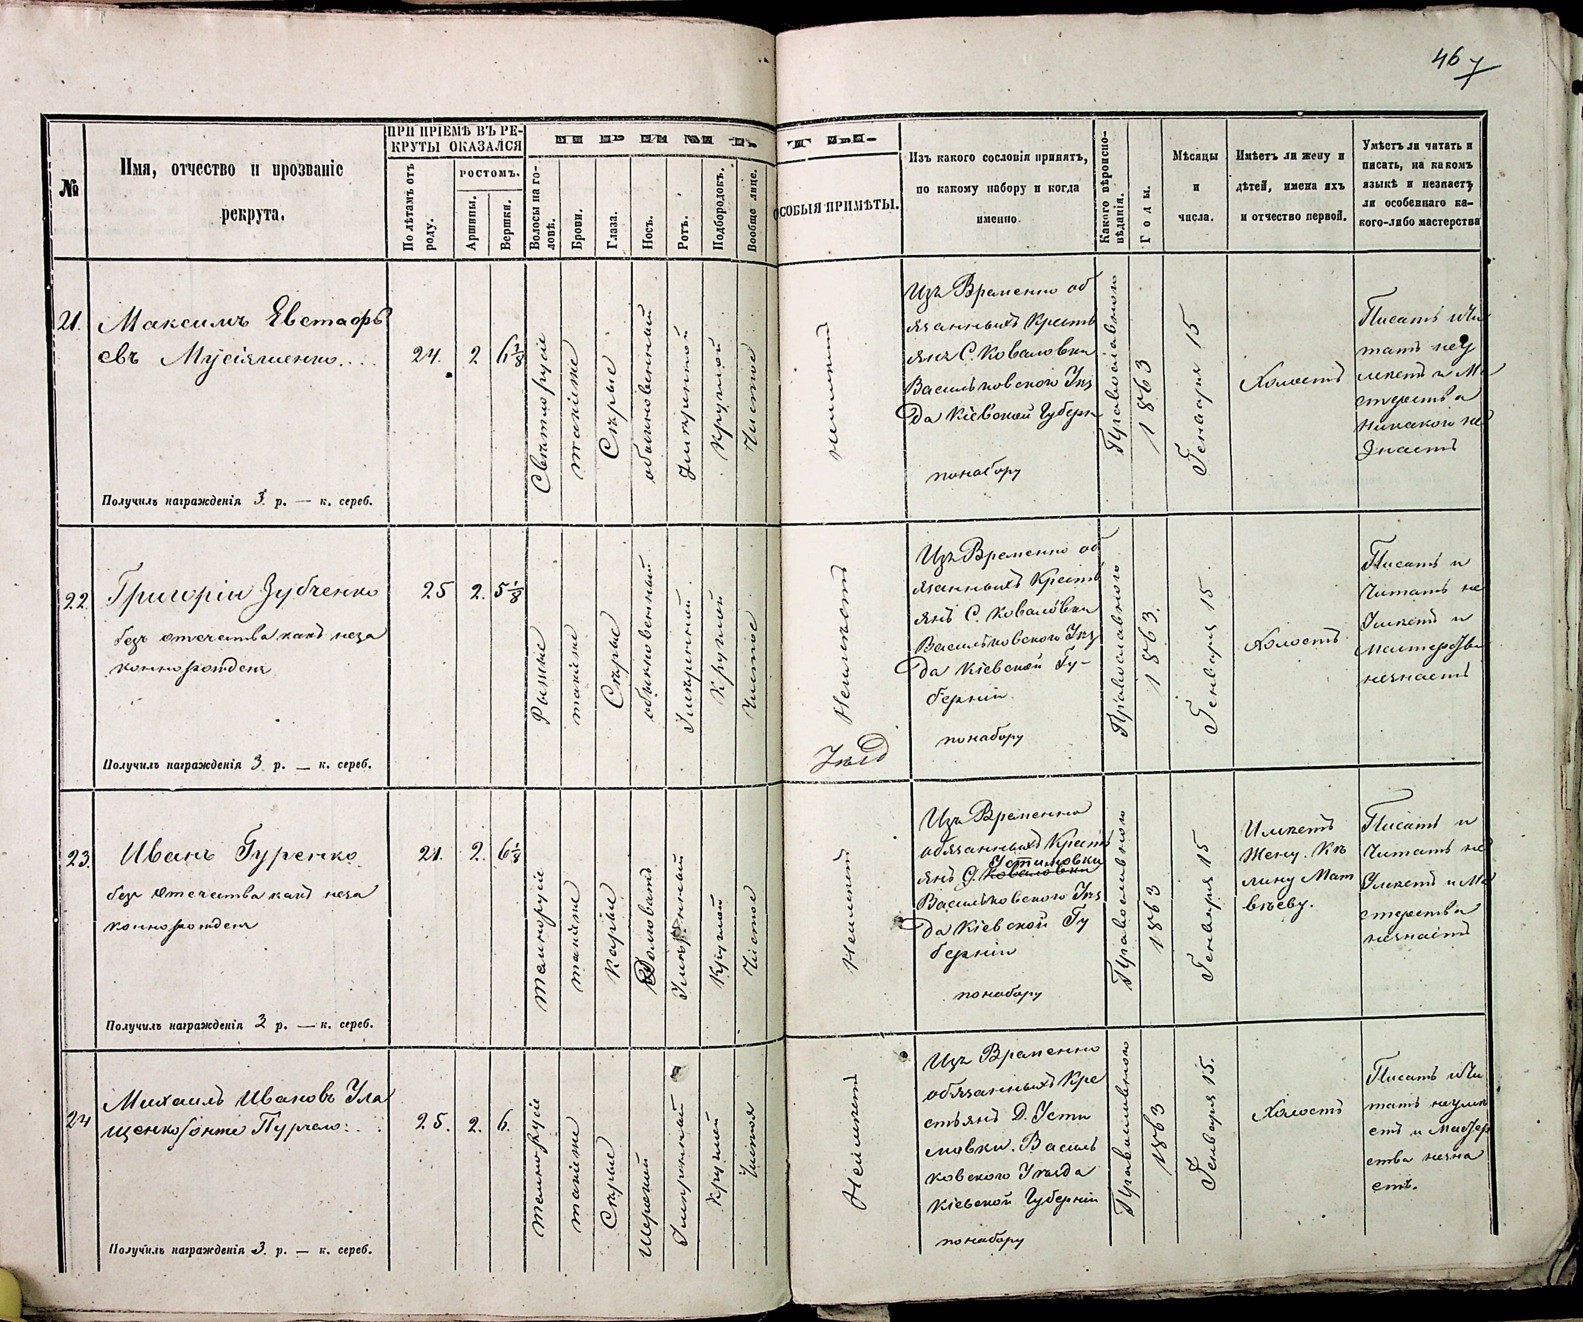 467
№
Имя, отчество и прозваніе
рекрута.
ПРИ ПРІЕМѢ ВЪ РЕ-
КРУТЫ ОКАЗАЛСЯ
По лѣтамъ отъ
роду.
ростомъ.
Аршины.
Вершки.
Волосы на го-
ловѣ.
Брови.
Глаза.
Носъ.
Ротъ.
Подбородокъ.
Вообще лице.
ОСОБЫЯ ПРИМѢТЫ.
Изъ какого сословія принятъ,
по какому набору и когда
именно.
Какого вѣроиспо-
вѣданія.
Годы.
Мѣсяцы
и
числа.
Имѣетъ ли жену и
дѣтей, имена ихъ
и отчество первой.
Умѣетъ ли читать и
писать, на какомъ
языкѣ и незнаетъ
ли особеннаго ка-
кого-либо мастерства
21.
Максимъ Евстафь
евъ Мусіяшенко...
Получилъ награжденія 3 р. — к. сереб.
24.
2
6 1/8
Свѣтлорусіе
такіеже
Сѣрые
обыкновенный
Умѣренной
Круглой
Чистое
неимѣетъ
Изъ Временно об
язанныхъ Кресть
янъ С. Коваловки
Васильковского Уѣз
да Кіевской Губерн
понабору
Православного
1863
Генваря 15
Холостъ
Писать ичи
тать неу
мѣетъ и Ма
стерства
Никакого не
Знаетъ
22.
Григорій Зубченко
безъ отечества какъ неза
коннорожден
Получилъ награжденія 3 р. — к. сереб.
25
2.
5 1/8
Рыжіе
такіеже
Сѣрые
обыкновенный
Умѣренний
Круглый
Чистое
Неимѣетъ
Изъ Временно об
язанныхъ Кресть
янъ С. Коваловки
Васильковского Уѣз
да Кіевской Гу-
берніи
понабору
Православного
1863.
Генваря 15.
Холостъ
Писать и
Читать не
Умѣетъ и
Мастерства
незнаетъ
23.
Иванъ Гуренко
безъ отечества какъ неза
коннорожден
Получилъ награжденія 3 р. — к. сереб.
21.
2.
6 1/8
Темнорусіе
такіеже
Каріе
Долговатъ
Умѣренный
Круглой
Чистое
Неимѣетъ
Изъ Временно
обязанныхъ Кресть
Устимовки
янъ Д. Коваловки
Васильковского Уѣз
да Кіевской Гу
берніи
понабору
Православного
1863
Генваря 15
Имѣетъ
Жену. Кѣ
лину Мат
вѣеву.
Писать и
Читать не
Умѣетъ и Ма
стерства
незнаетъ
24
Михаилъ Ивановъ Ула
щенко онже Пурчело..
Получилъ награжденія 3. р. — к. сереб.
25.
2.
6.
темнорусіе
такіеже
Сѣрые
Широкій
Умѣренный
Круглый
Чистоя
Неимѣетъ
Изъ Временно
обязанныхъ Кре
стьянъ Д. Усти
мовки. Василь
ковского Уѣзда
Кіевской Губерніи
понабору
Православного
1863
Генваря 15.
Холостъ
Писать ичи
тать неумѣ
етъ и Мастер
ства незна
етъ.